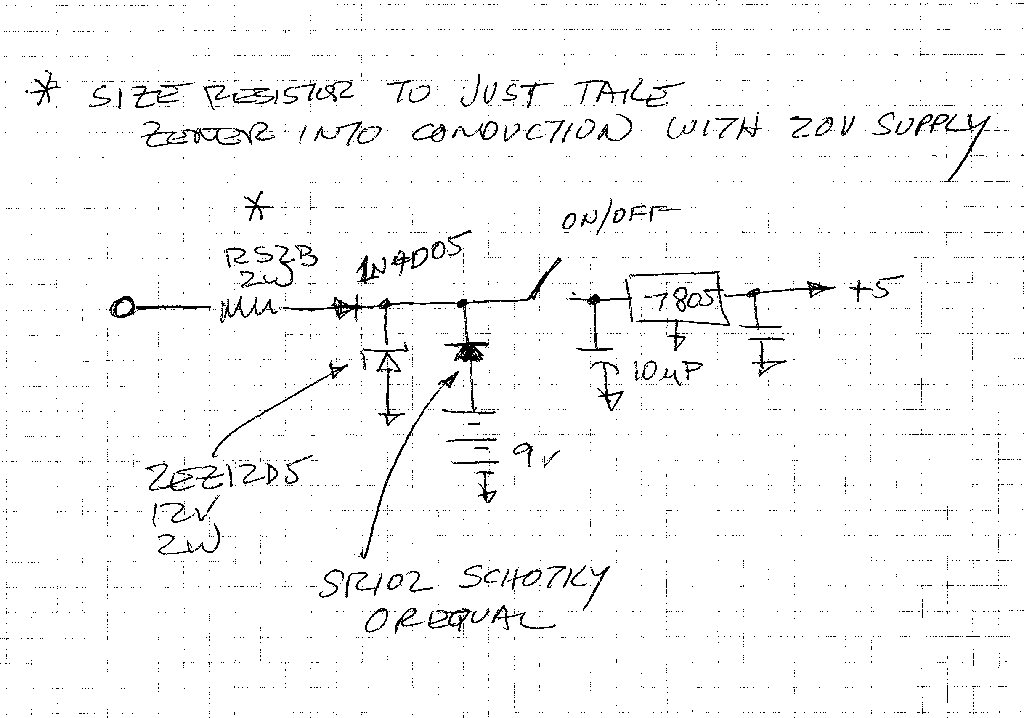 * SIZE RESISTOR TO JUST TAKE
ZENER INTO CONDUCTION WITH 20V SUPPLY
*
ON/OFF
RS2B
2W
1N4005
7805
+5
10μF
9V
2EZ12D5
12V
2W
SR102 SCHOTKY
OR EQUAL